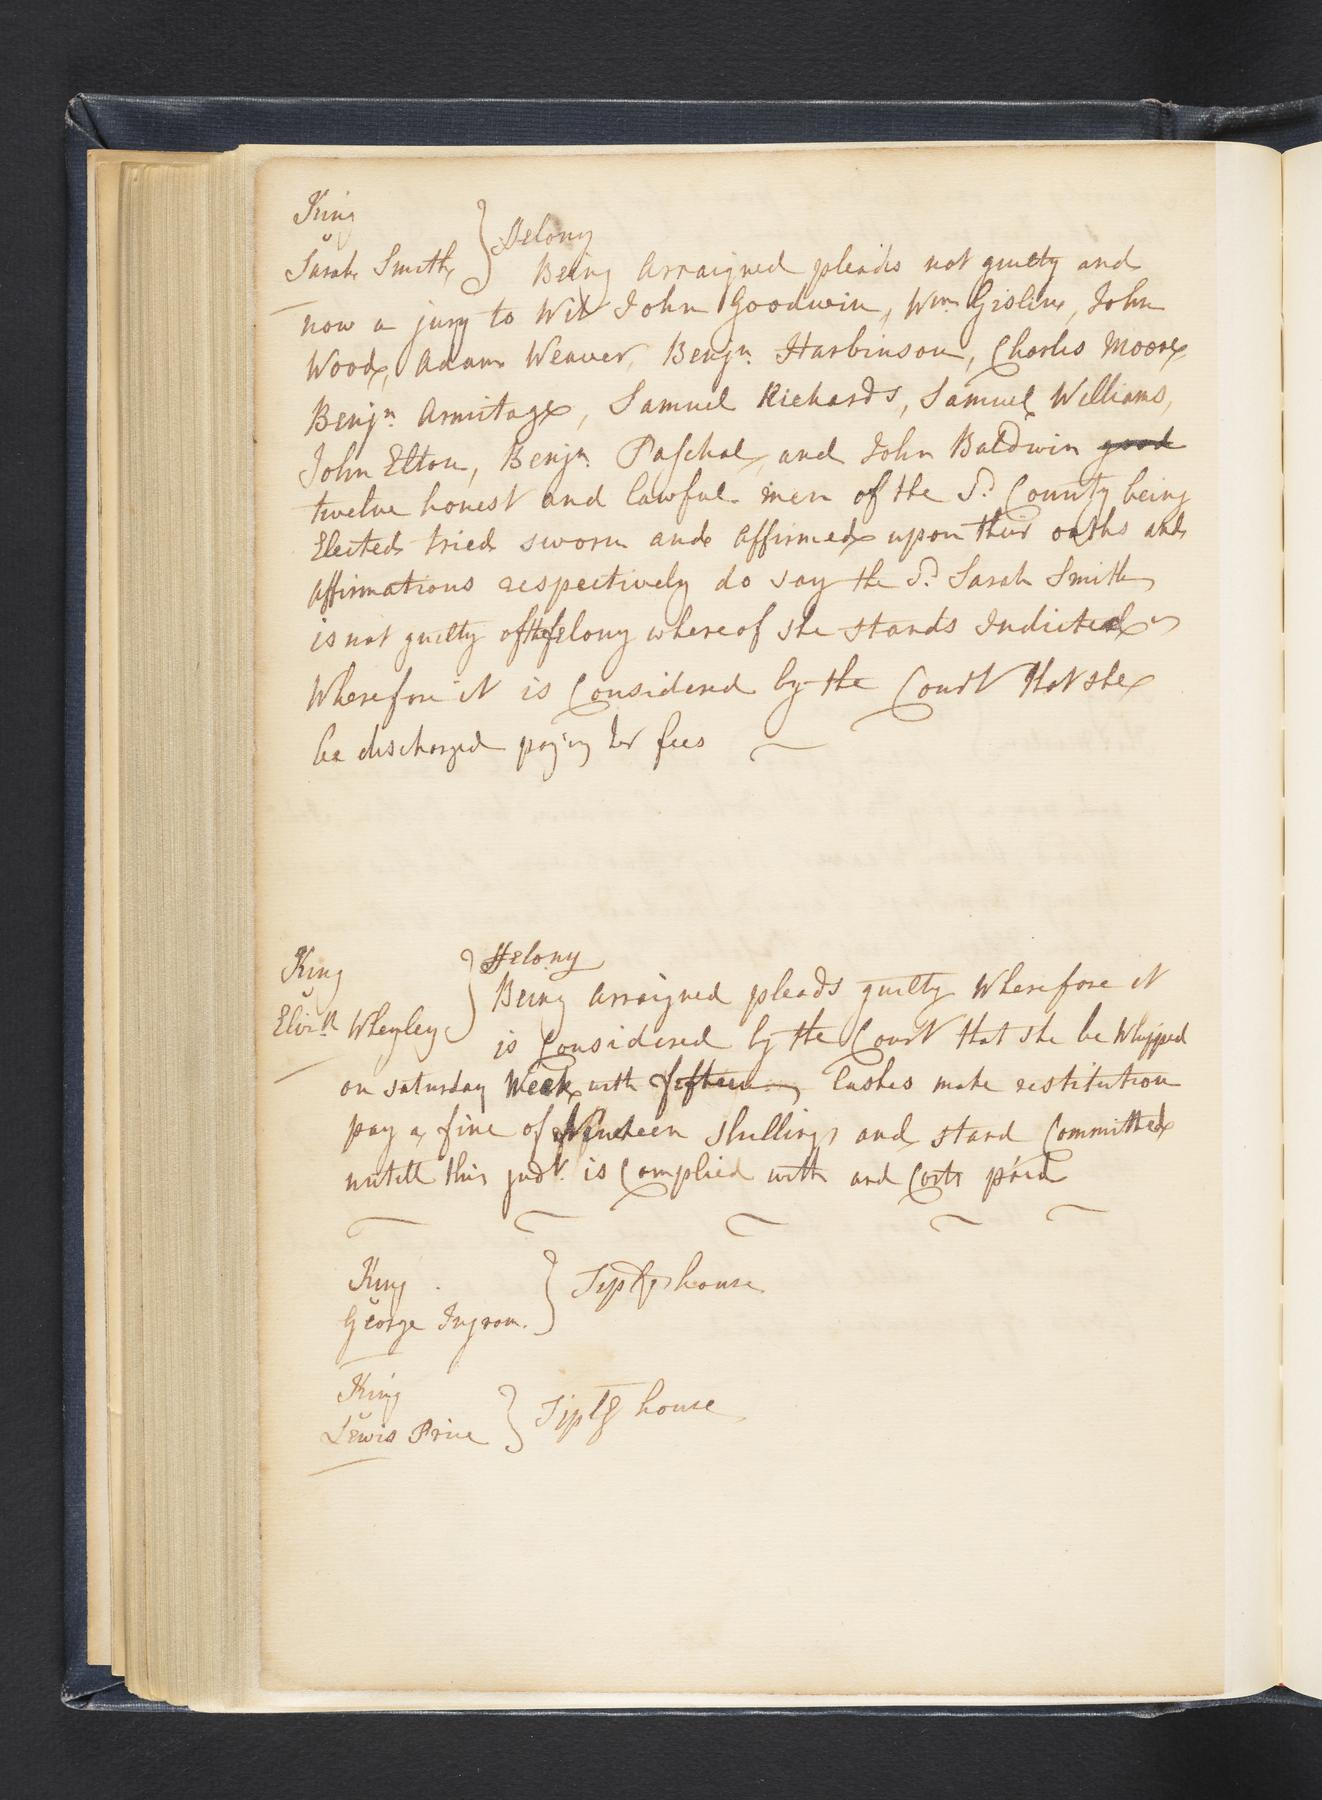 King
v
Sarah Smith } Felony
Being Arraigned pleads not guilty and
now a jury to Wit John Goodwin, Wm. Gislin, John
Wood, Adam Weaver, Benjn. Harbinson, Charles Moore
Benjn. Armitage, Samuel Richards, Samuel Williams,
John Elton, Benjn. Paschal, and John Baldwin good
twelve honest and lawful men of the Sd. County being
Elected tried sworn and affirmed upon their oaths and
affirmations respectively do say the Sd. Sarah Smith
is not guilty of the felony whereof she stands Indicted
Wherefore it is Considered by the Court that she
be discharged paying her fees
King
v
Elizth. Wheyley } Felony
Being Arraigned pleads guilty Wherefore it
is Considered by the Court that she be Whipped
on saturday Week with fifteen lashes make restitution
pay a fine of Nineteen shillings and stand Committed
untill this judt. is Complied with and Costs paid
King
v
George Ingram. } Tiplg house
King
v
Lewis Price } Tiplg house